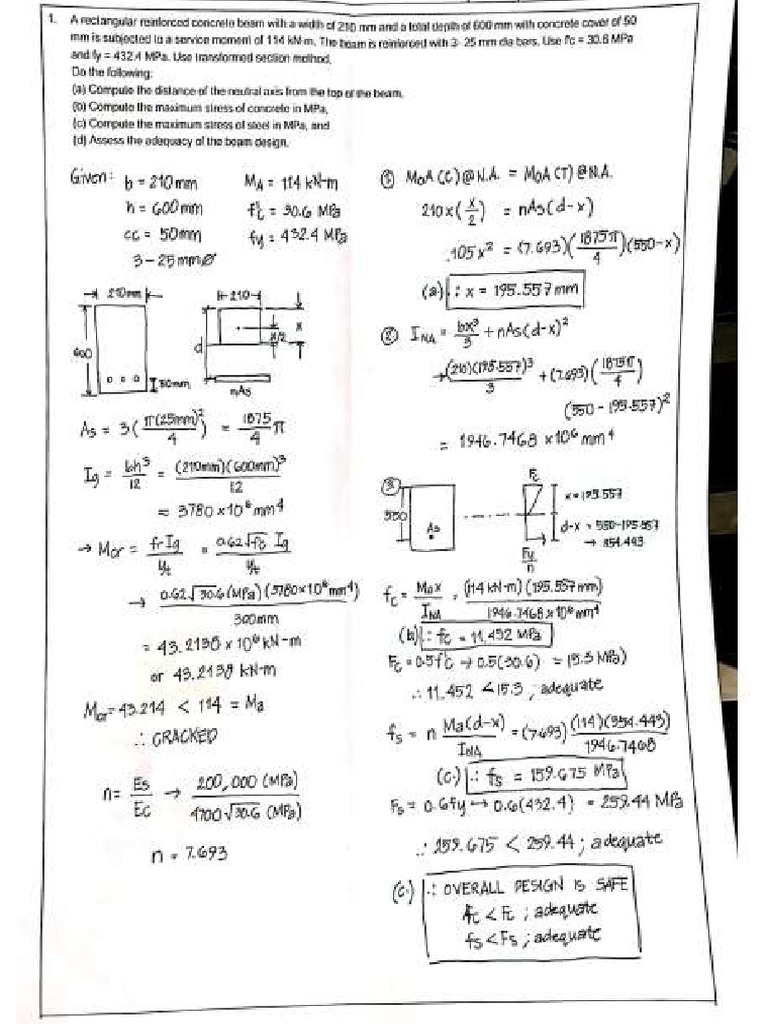 1. A rectangular reinforced concrete beam with a width of 210 mm and a total depth of 600 mm with concrete cover of 50
mm is subjected to a service moment of 114 kN-m. The beam is reinforced with 3- 25 mm dia bars. Use f'c = 30.6 MPa
and fy = 432.4 MPa. Use transformed section method.
Do the following:
(a) Compute the distance of the neutral axis from the top of the beam,
(b) Compute the maximum stress of concrete in MPa,
(c) Compute the maximum stress of steel in MPa, and
(d) Assess the adequacy of the beam design.
Given: b = 210 mm
h = 600 mm
cc = 50 mm
3-25 mm ø
MA = 114 kN-m
f'c = 30.6 MPa
fy = 432.4 MPa
210mm
600
50mm
210
d
x/2
x
nAs
As = 3(π(25mm)²/4) = 1875/4 π
Ig = bh³/12 = (210mm)(600mm)³/12
= 3780 x10⁶ mm⁴
→ Mcr = fr Ig/yt = 0.62√f'c Ig/yt
→ 0.62√30.6 (MPa) (3780x10⁶ mm⁴)/300mm
= 43.2138 x 10⁶ kN-m
or 43.2138 kN-m
Mcr = 43.214 < 114 = Ma
∴ CRACKED
n = Es/Ec → 200,000 (MPa)/4700√30.6 (MPa)
n = 7.693
① MoA (C) @ N.A. = MoA (T) @ N.A.
210x(x/2) = nAs(d-x)
105x² = (7.693)(1875π/4)(550-x)
(a) ∴ x = 195.557 mm
② INA = bx³/3 + nAs(d-x)²
→ (210)(195.557)³/3 + (7.693)(1875π/4)
(550 - 195.557)²
= 1946.7468 x10⁶ mm⁴
③
550
As
Fc
Fy/n
x = 195.557
d-x = 550-195.557
→ 354.443
fc = Max/INA = (114 kN-m)(195.557mm)/1946.7468 x10⁶ mm⁴
(b) ∴ fc = 11.452 MPa
Fc = 0.5f'c → 0.5(30.6) = 15.3 MPa)
∴ 11.452 < 15.3 ; adequate
fs = n Ma(d-x)/INA = (7.693) (114)(354.443)/1946.7468
(c.) ∴ fs = 159.675 MPa
Fs = 0.6fy → 0.6(432.4) = 259.44 MPa
∴ 159.675 < 259.44 ; adequate
(c.) ∴ OVERALL DESIGN IS SAFE
fc < Fc ; adequate
fs < Fs ; adequate